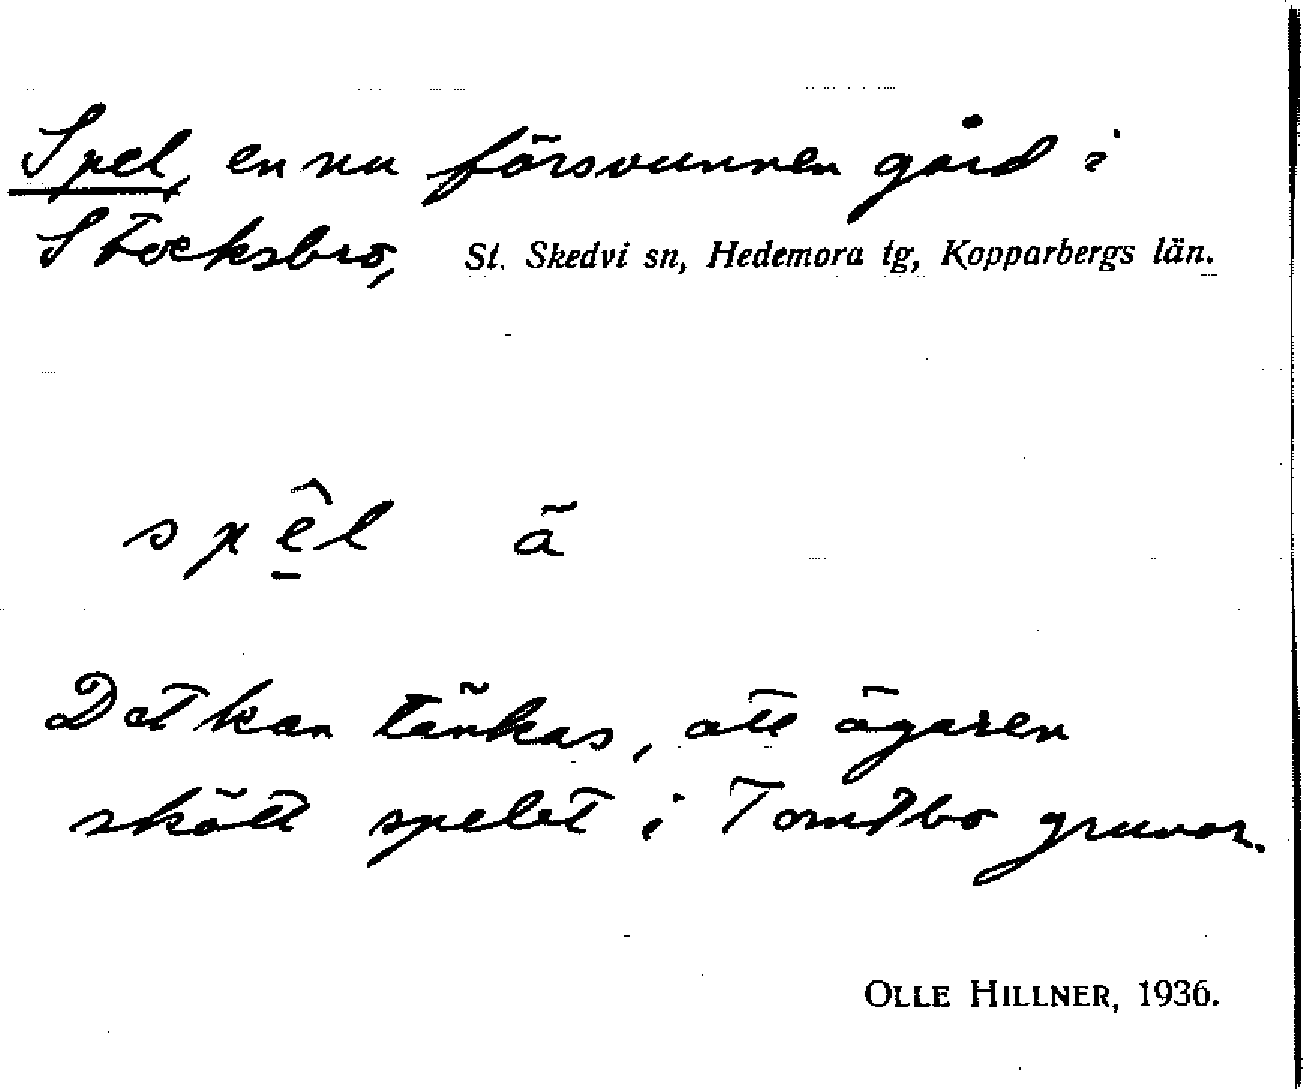 Spel, en nu försvunnen gård i
Stocksbro, St. Skedvi sn, Hedemora tg, Kopparbergs län.
spê̱l ã
Det kan tänkas, att ägaren
skött spelet i Tomtbo gruvor.
OLLE HILLNER, 1936.